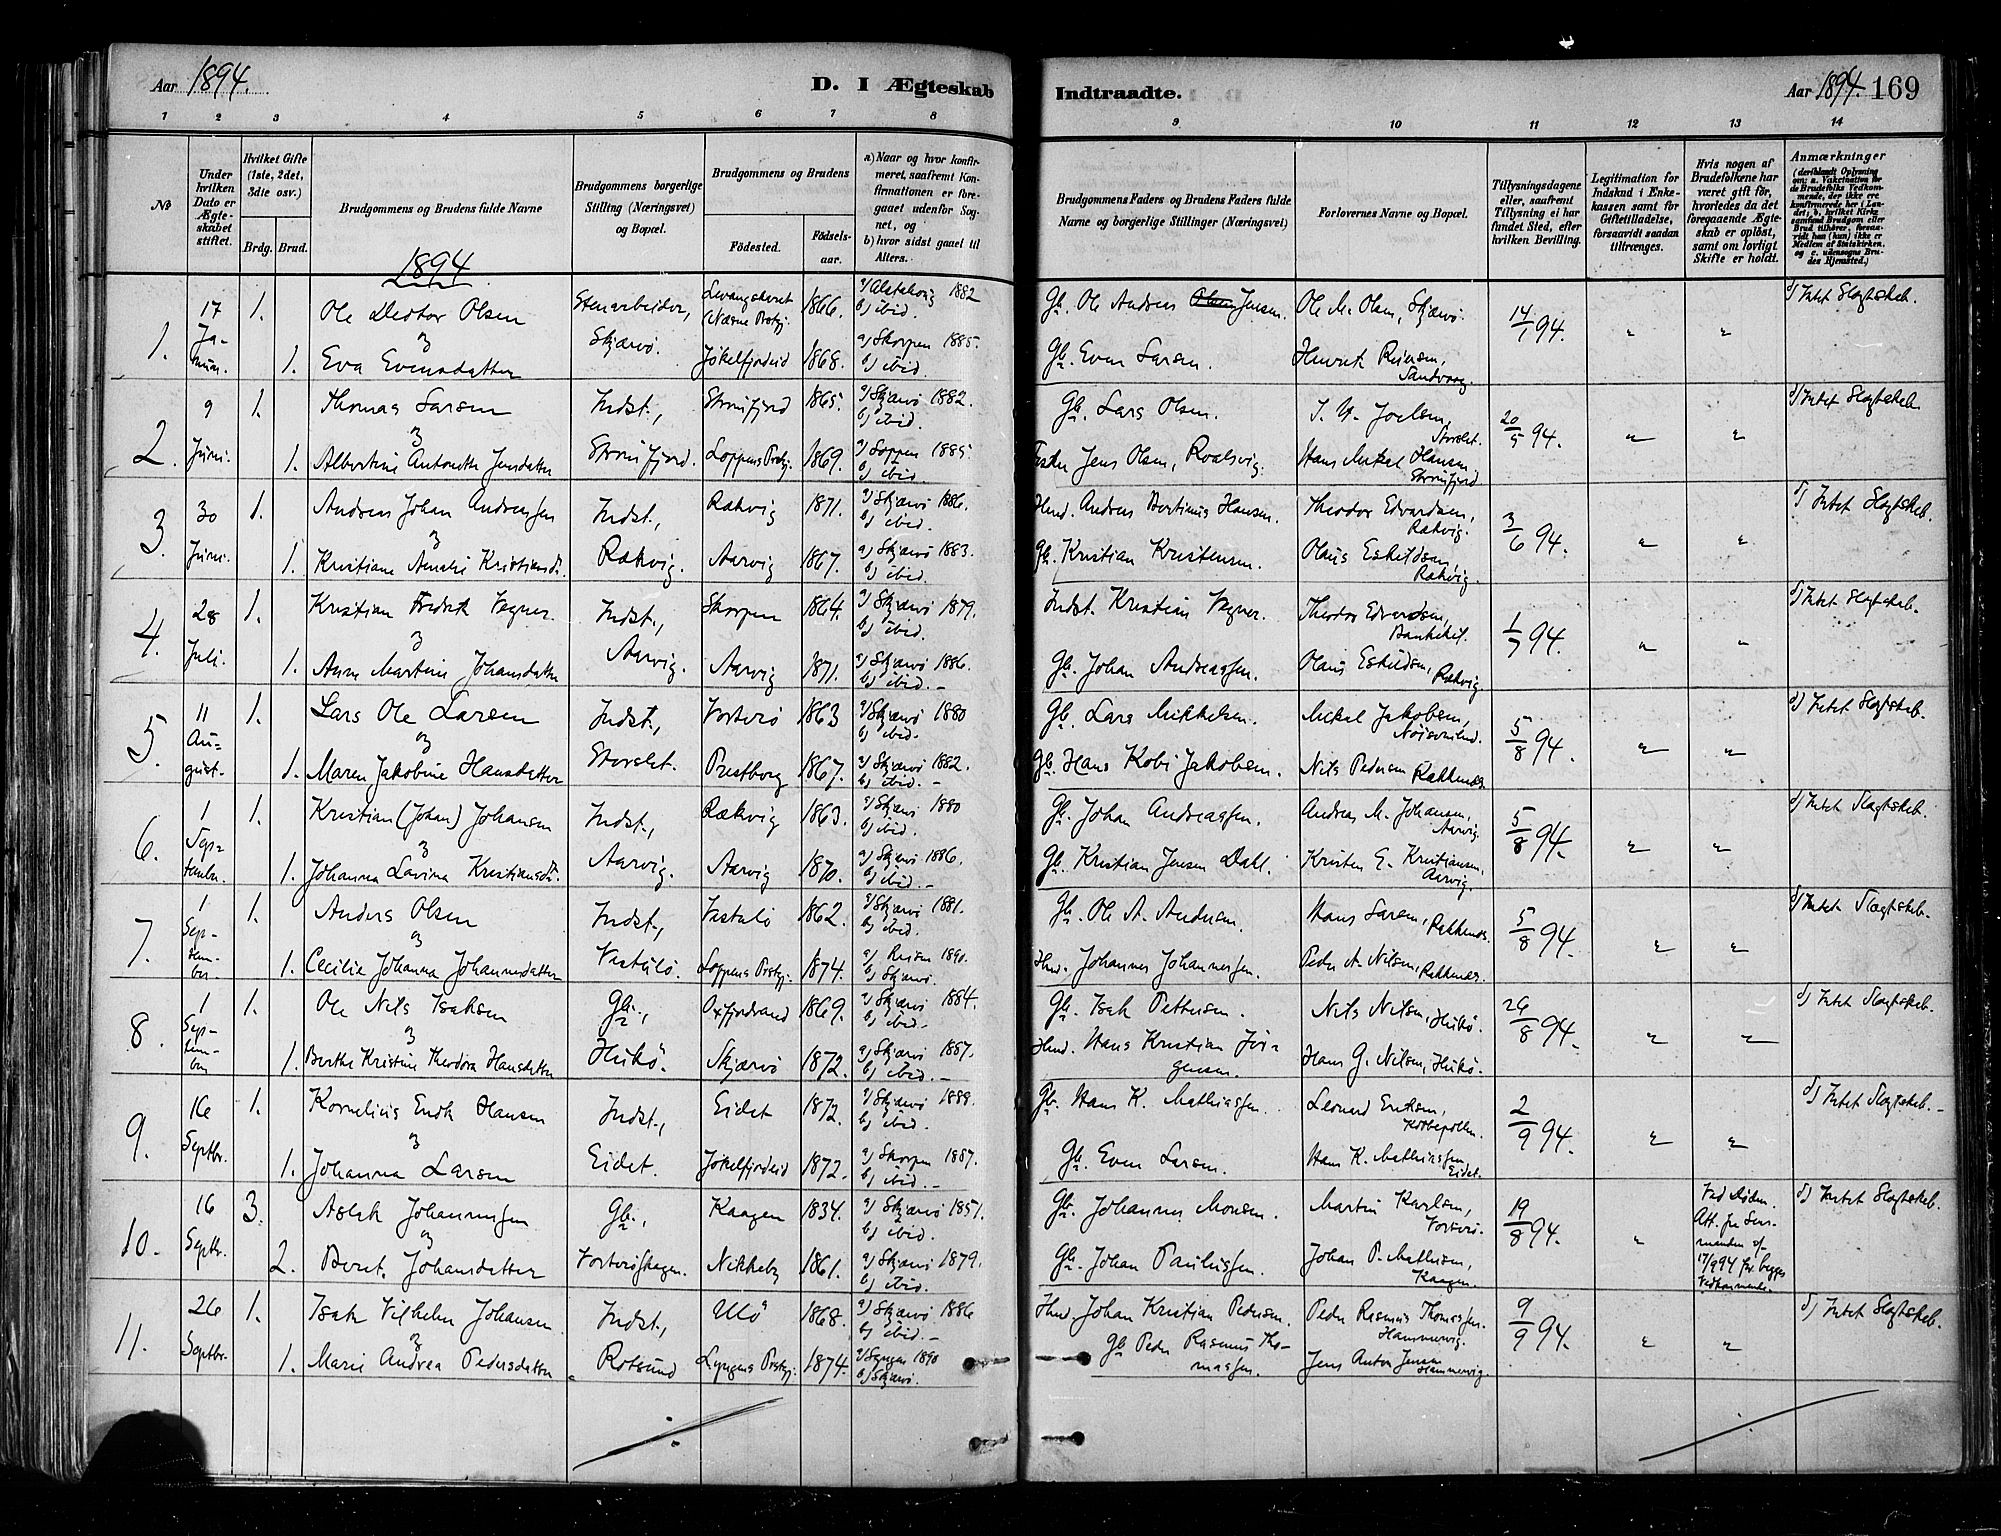 Aar 1894.
D. I Ægteskab
Indtraadte.
Aar 1894. 169
1 2 3 4 5 6 7 8 9 10 11 12 13 14
No
Under hvilken Dato er Ægteskabet stiftet.
Hvilket Gifte (1ste, 2det, 3die osv.)
Brdg. Brud.
Brudgommens og Brudens fulde Navne
Brudgommens borgerlige Stilling (Næringsvei) og Bopæl.
Brudgommens og Brudens
Fødested. Fødselsaar.
a) Naar og hvor konfirmeret, saafremt Konfirmationen er foregaaet udenfor Sognet, og
b) hvor sidst gaaet til Alters.
Brudgommens Faders og Brudens Faders fulde Navne og borgerlige Stillinger (Næringsvei)
Forlovernes Navne og Bopæl.
Tillysningsdagene eller, saafremt Tillysning ei har fundet Sted, efter hvilken Bevilling.
Legitimation for Indskud i Enkekassen samt for Giftetilladelse, forsaavidt saadan tiltrænges.
Hvis nogen af Brudefolkene har været gift før, hvorledes da det foregaaende Ægteskab er opløst, samt om lovligt Skifte er holdt.
Anmærkninger
1894
1. 17 Januar. 1. Ole Dedtor Olsen Stenarbeider, 1866 a) Alstahoug 1882 b) ibid. Gb. Ole Andreas Jensen. Ole M. Olsen, Skjærvø. 14/1 94. " " d) Intet Slægtskab.
& Skjærvø.
1. Eva Evensdatter Jøkelfjordeid 1868. a) Skorpen 1885. b) ibid. Gb. Even Larsen. Reiersen, Sandvaag.
2. 9 Juni. 1. Thomas Larsen Indst., Straumfjord 1865. a) Skjærvø 1882. b) ibid. Gb. Lars Olsen. Storslet. 20/5 94. " " d) Intet Slægtskab
& Straumfjord.
1. Albertine Antonette Jensdatter Loppens Prstgj. 1869. a) Loppen 1885. b) ibid. Jens Olsen, Hans Mikal Hansen Straumfjord
3. 30 Juni. 1. Andreas Johan Andreassen Indst., Rakvig 1871. a) Skjærvø 1886. b) ibid. Andreas Bertinus Hansen. Theodor Edvardsen, Rakvig. 3/6 94. " " d) Intet Slægtskab.
& Rakvig.
1. Kristiane Amalie Kristiansdt. Aarvig 1867. a) Skjærvø 1883. b) ibid. Gb. Kristian Kristensen. Olaus Eskildsen, Rakvig.
4. 28 Juli. 1. Kristian Fredrik Vagner. Indst., Skorpen 1864. a) Skjærvø 1879. b) ibid. Indst. Kristian Vagner. Theodor Edvardsen, 1/7 94. " " d) Intet Slægtskab.
& Aarvig.
1. Anne Martine Johansdatter Aarvig 1871. a) Skjærvø 1886. b) ibid. Gb. Johan Andreassen. Olaus Eskildsen, Rakvig.
5. 11 August. 1. Lars Ole Larsen Indst., Vorterø 1863 a) Skjærvø 1880 b) ibid. Gb. Lars Mikkelsen. Mikal Jakobsen, 5/8 94. " " d) Intet Slægtskab.
& Storslet.
1. Maren Jakobine Hansdatter Prestborg 1867. a) Skjærvø 1882. b) ibid. Gb. Hans Kobi Jakobsen. Nils Pedersen Rakkenæs
6. 1 September. 1. Kristian (Johan) Johansen Indst., Rakvig 1863. a) Skjærvø 1880 b) ibid. Gb. Johan Andreassen. Andreas M. Johansen, Aarvig. 5/8 94. " " d) Intet Slægtskab.
& Aarvig.
1. Johanna Lovina Kristiansdt. Aarvig 1870. a) Skjærvø 1886. b) ibid. Gb. Kristian Jensen Dahl. Kristen E. Kristiansen, Aarvig.
7. 1 September 1. Anders Olsen Indst., 1862. a) Skjærvø 1881. b) ibid. Gb. Ole A. Andersen. Hans Larsen, Rakkenæs. 5/8 94. " " d) Intet Slægtskab.
&
1. Cecilie Johanna Johannesdatter Loppens Prstgj. 1874. a) 1890. b) Skjærvø. Johannes Johannessen. Peder A. Nilsen, Rakkenæs.
8. 1 September 1. Ole Nils Isaksen Gb., Oxfjordvand 1869. a) Skjærvø 1884. b) ibid. Gb. Isak Pettersen. Nils Nilsen, Hukø. 26/8 94. " " d) Intet Slægtskab.
& Hukø.
1. Berthe Kristine Theodora Hansdatter Skjærvø 1872. a) Skjærvø 1887. b) ibid. Hans Kristian Jørgensen. Hans G. Nilsen, Hukø.
9. 16 Septbr. 1. Kornelius Enok Hansen Indst., Eidet 1872. a) Skjærvø 1888. b) ibid. Gb. Hans K. Mathiassen. Leonard Eriksen, 2/9 94. " " d) Intet Slægtskab.
& Eidet.
1. Johanna Larsen Jøkelfjordeid 1872. a) Skorpen 1887. b) ibid. Gb. Even Larsen. Hans K. Mathiassen Eidet.
10. 16 Septbr. 3. Aslak Johannessen Gb., Kaagen 1834. a) Skjærvø 1851. b) ibid. Gb. Johannes Monsen. Martin Karlsen, Vorterø. 19/8 94. " Ved Døden. Att. fra Lensmanden af 17/9 94 for begges Vedkommende. d) Intet Slægtskab.
& Vorterøskagen.
2. Beret Johansdatter Nikkeby 1861. a) Skjærvø 1879. b) ibid. Gb. Johan Paulussen. Johan P. Mathisen, Kaagen.
11. 26 Septbr. 1. Isak Vilhelm Johansen. Indst., Ulö 1868. a) Skjærvø 1886 b) ibid. Johan Kristian Pedersen. Peder Rasmus Thomassen. Hammervig. 9/9 94. " " d) Intet Slægtskab.
& Rotsund
1. Marie Andrea Pedersdatter Lyngens Prstgj. 1874. a) Lyngen 1890 b) Skjærvø. Gb Peder Rasmus Thomassen. Jens Anton Jensen Hammervig.